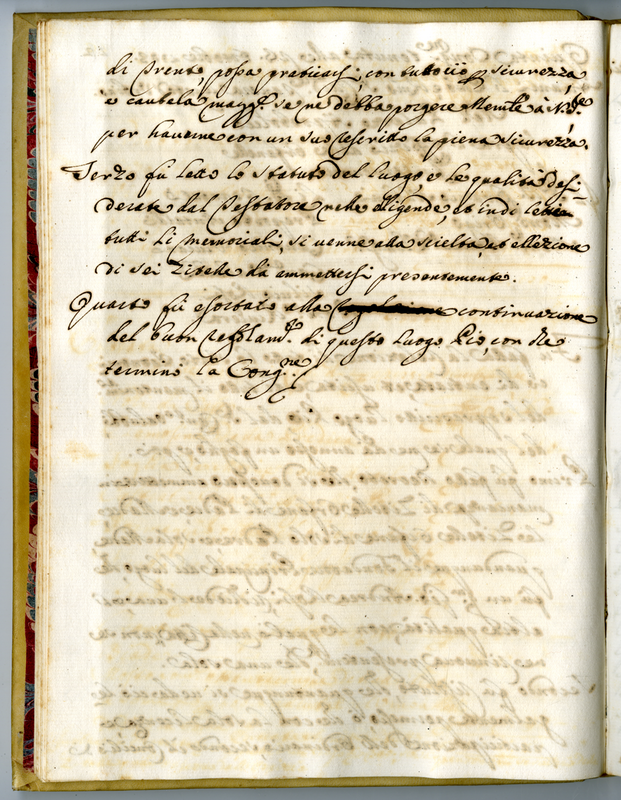 di Trento, possa praticarsi, con tutto ciò p sicurezza,
e cautela magg.e se ne debba porgere Memle à N.S.re
per haverne con un suo rescritto la piena sicurezza.
Terzo fù letto lo statuto del luogo, e le qualità desi=
derate dal Testatore nelle eligende, et indi letti
tutti li memoriali, si venne alla scielta, et ellezione
di sei Zitelle da ammettersi presentemente.
Quarto fù esortato alla continuazione
del buon regolam.to di questo luogo Pio, con che
terminò la Cong.ne